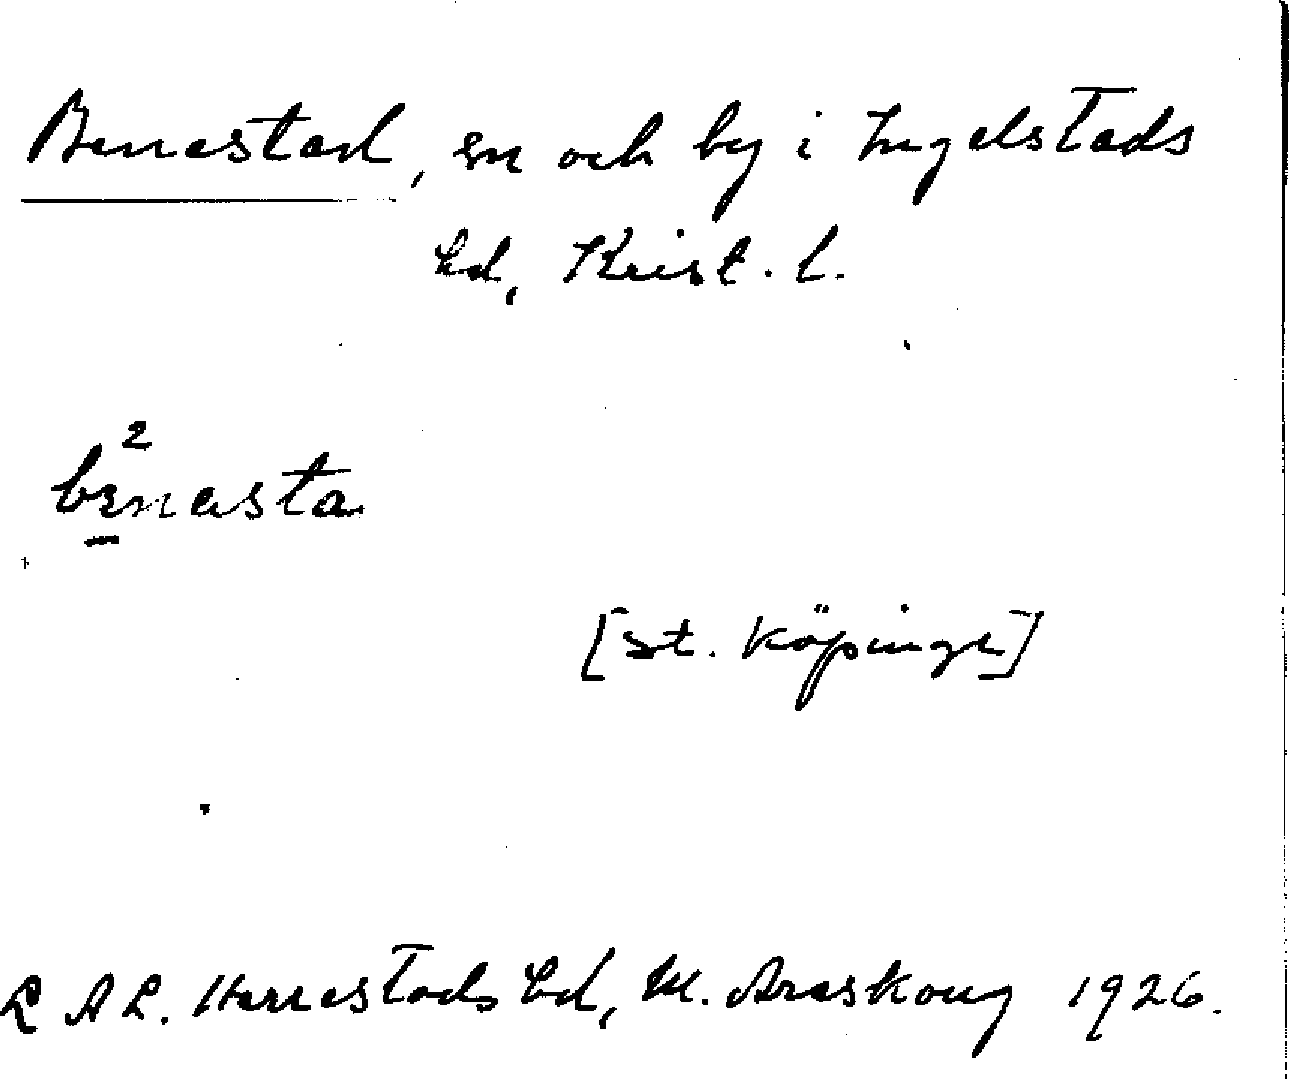 Benestad, sn och by i Ingelstads
hd, Krist. l.
2
benasta
[St. Köpinge]
L A L. Herrestads hd, M. Areskoug 1926.